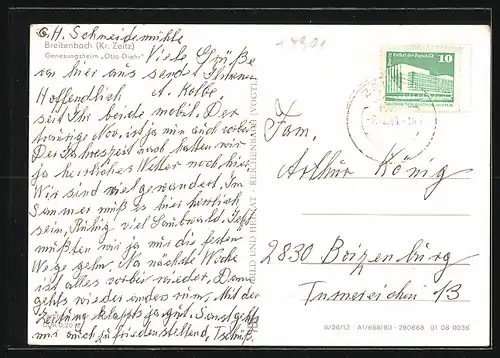 G. H. Schneidemühle
Breitenbach (Kr. Zeitz)
Genesungsheim „Otto Diehr“
Viele Grüße
von hier aus sendet Ihnen
A. Kolbe
Hoffendlich
seit Ihr beide mobil. Der
traurige Nov. ist ja nun auch vorbei
Der Jahreszeit nach hatten wir
ja herrliches Wetter noch hier.
Wir sind viel gewandert. Im
Sommer muß es hier herrlich
sein, Ruhig viel Laubwald. Jetzt
mußten wir ja nur die festen
Wege gehn. Na nächste Woche
ist alles vorbei wieder. Dann
gehts wieder anders rum. Mit der
Zeitung klappts ja gut. Sonst gehts
mir auch zufriedenstellend, Tschüß.
BILD UND HEIMAT REICHENBACH (VOGTL)
Palast der Republik
10
Fam.
Arthur König
2830 Boizenburg
Turnereichen 13
III/26/13 · A1/668/80 · 280668 01 08 0036